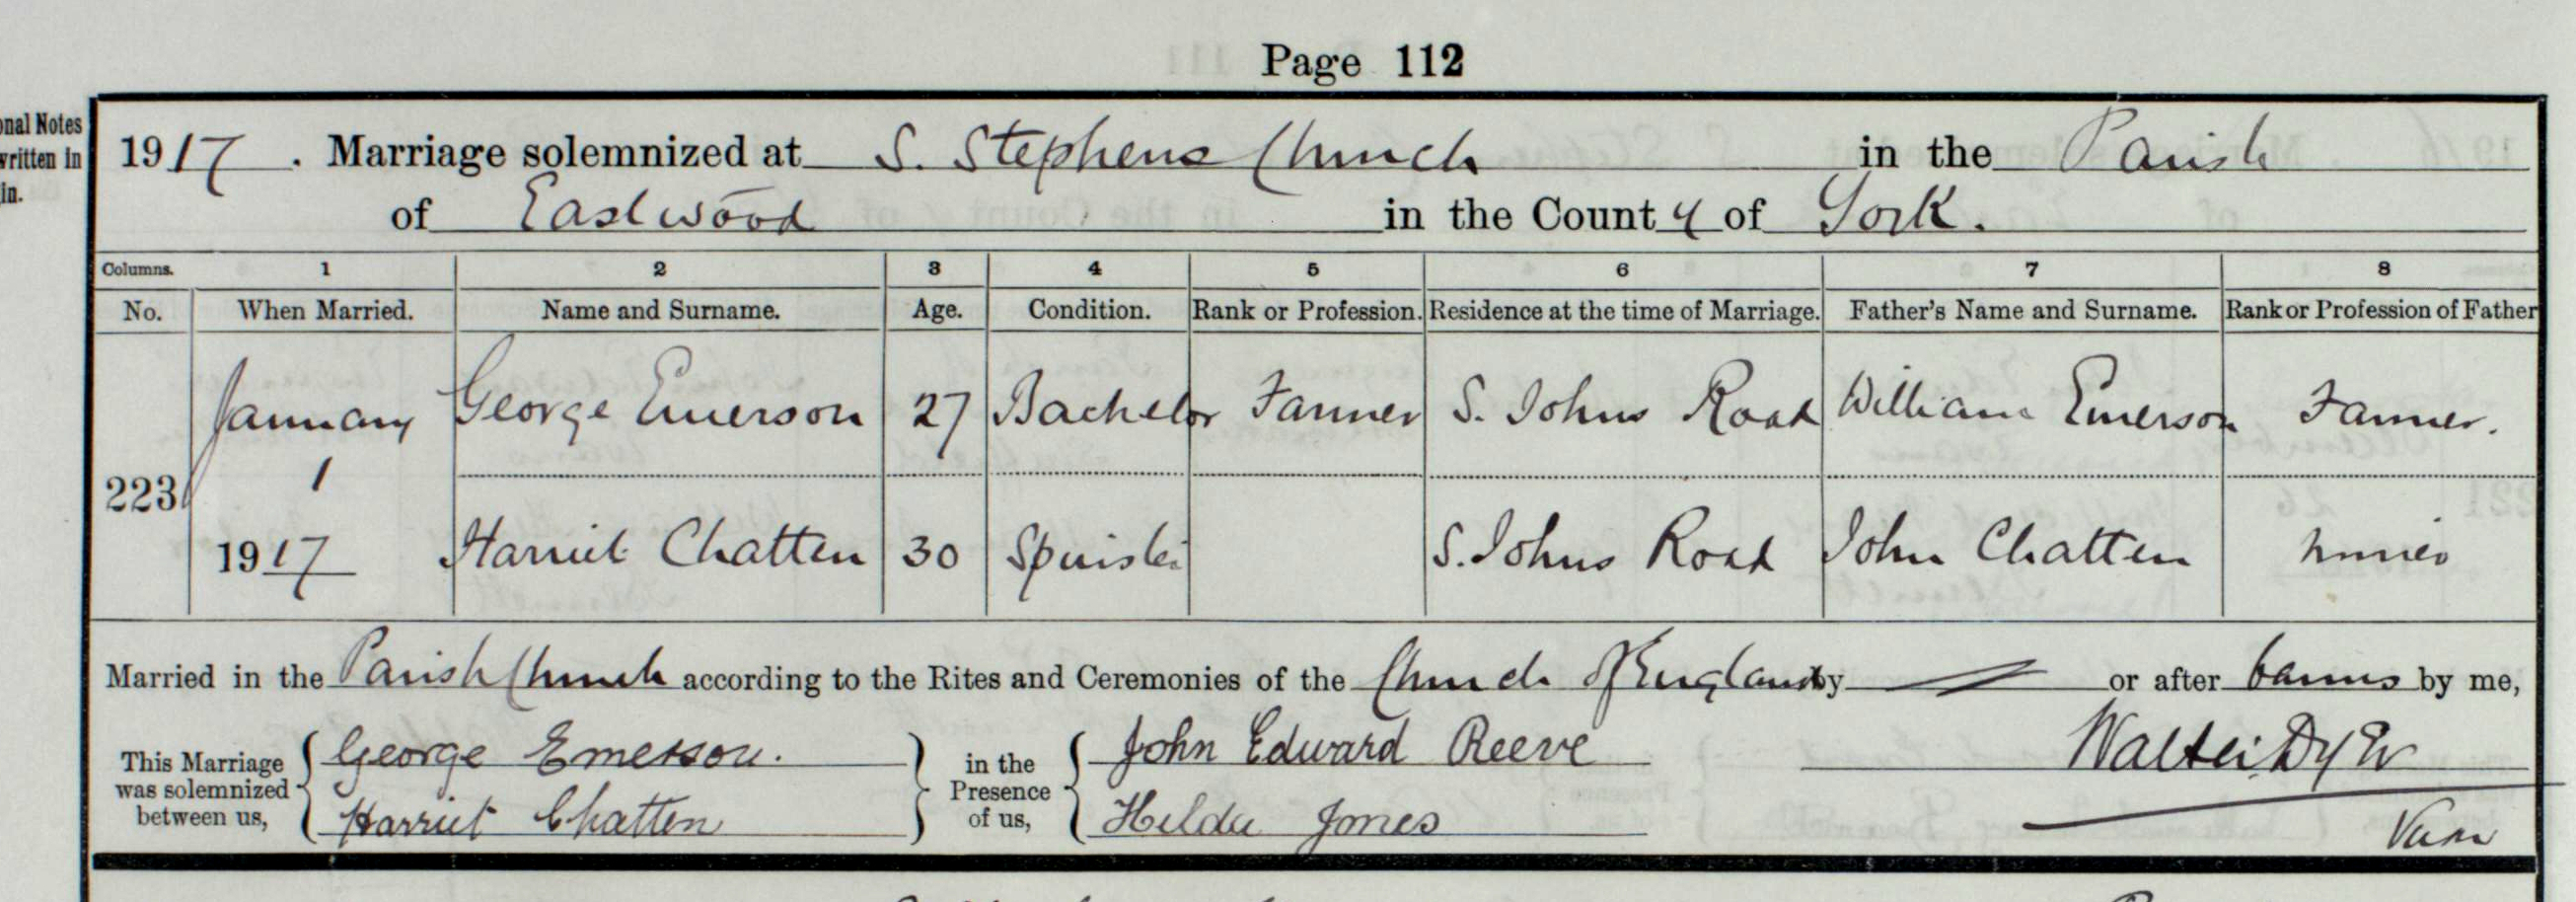 Page 112
onal Notes
written in
in.
1917. Marriage solemnized at S. Stephens Church in the Parish
of Eastwood in the County of York.
Columns. 1 2 3 4 5 6 7 8
No. When Married. Name and Surname. Age. Condition. Rank or Profession. Residence at the time of Marriage. Father's Name and Surname. Rank or Profession of Father
January George Emerson 27 Bachelor Farmer S. Johns Road William Emerson Farmer.
223 1
1917 Harriet Chatten 30 Spinster S. Johns Road John Chatten miner
Married in the Parish Church according to the Rites and Ceremonies of the Church of England by or after banns by me,
This Marriage was solemnized between us, George Emerson. in the Presence of us, John Edward Reeve Walter Dyer
Harriet Chatten Hilda Jones Vicar